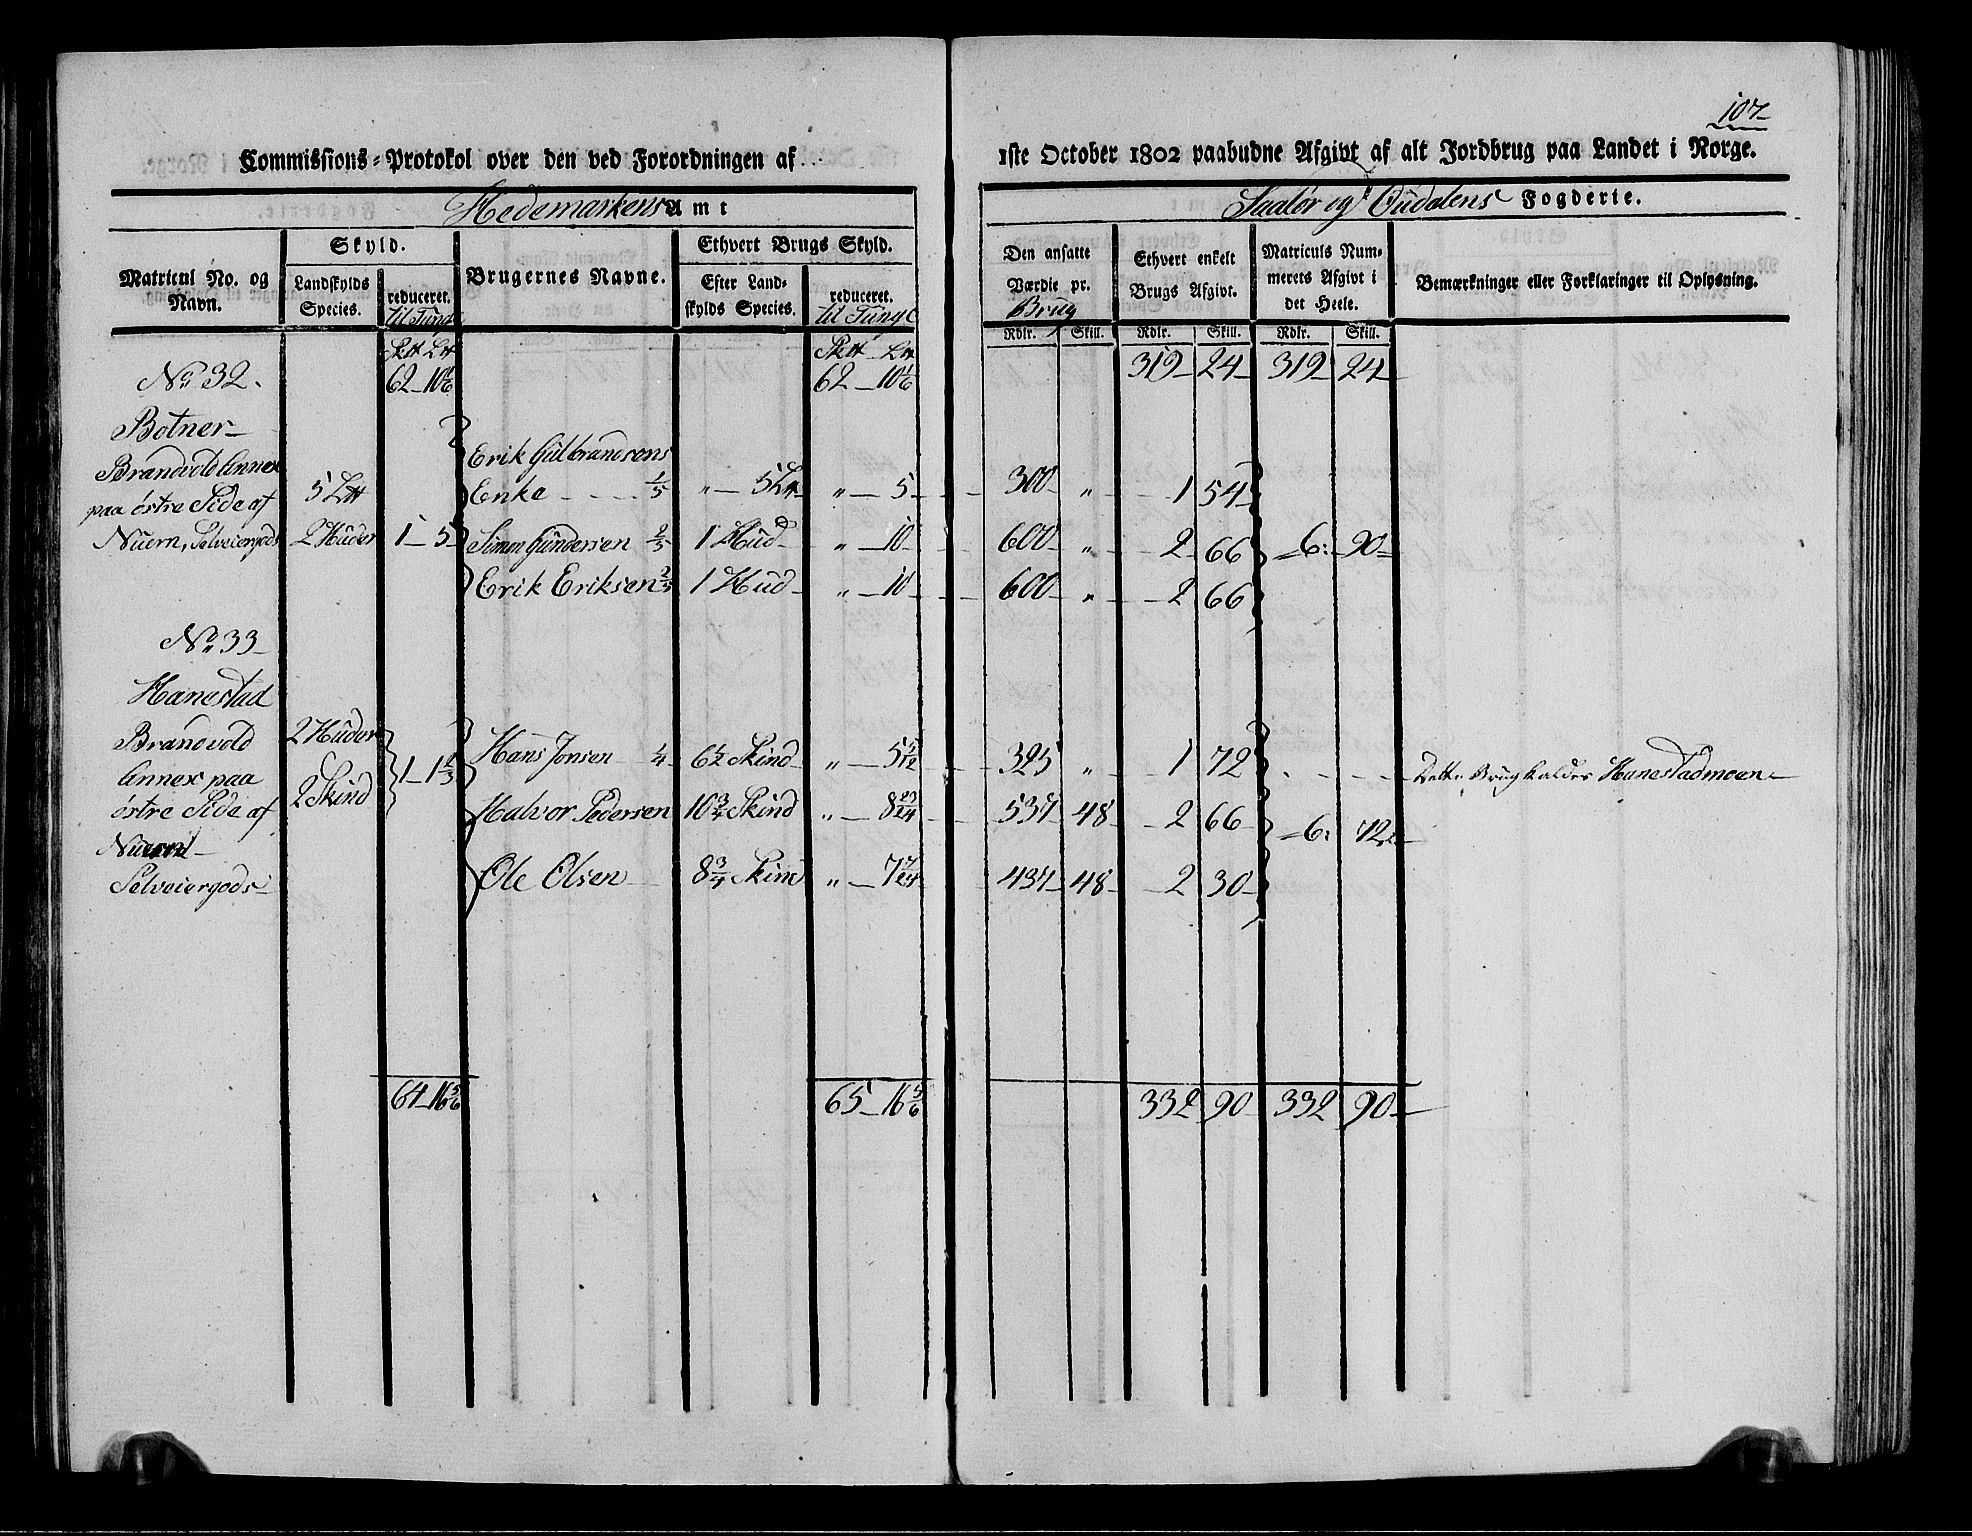 107
Commissions-Protokol over den ved Forordningen af
1ste October 1802 paabudne Afgivt af alt Jordbrug paa Landet i Norge.
Hedemarkens Amt
Saalør og Oudalens Fogderie.
Matricul No. og Navn.
Skyld.
Landskylds Species.
reduceret. til Tunge
Brugernes Navne.
Ethvert Brugs Skyld.
Efter Landskylds Species.
reduceret. til Tunge
Den ansatte Værdie pr. Brug
Ethvert enkelt Brugs Afgivt.
Matriculs Nummerets Afgivt i det Heele.
Bemærkninger eller Forklaringer til Oplysning.
Rdlr. Skill. Rdlr. Skill. Rdlr. Skill.
62 10 1/6 62 10 1/6 319 24 319 24
No 32.
Botner
Brandvold Annex
paa østre Side af
Nuern, Selveiergods
5 L℔
2 Huder 1 5
Erik Gulbrandsens
Enke 1/5 " 5 L℔ " 5 300 " 1 54
Simen Gundersen 2/5 1 Hud " 10 600 " 2 66 6: 90
Erik Eriksen 2/5 1 Hud " 10 600 " 2 66
No 33
Hanestad
Brandvold
Annex paa
østre Side af
Nuern
Selveiergods
2 Huder
2 Skind 1 1 1/3
Hans Jonsen 1/4 6 1/2 Skind " 5 5/12 325 " 1 72 Dette Brug kaldes Hanestadmoen
Halvor Pedersen 10 3/4 Skind " 8 23/24 537 48 2 66 6: 72
Ole Olsen 8 3/4 Skind " 7 7/24 437 48 2 30
64 16 5/6 65 16 5/6 332 90 332 90